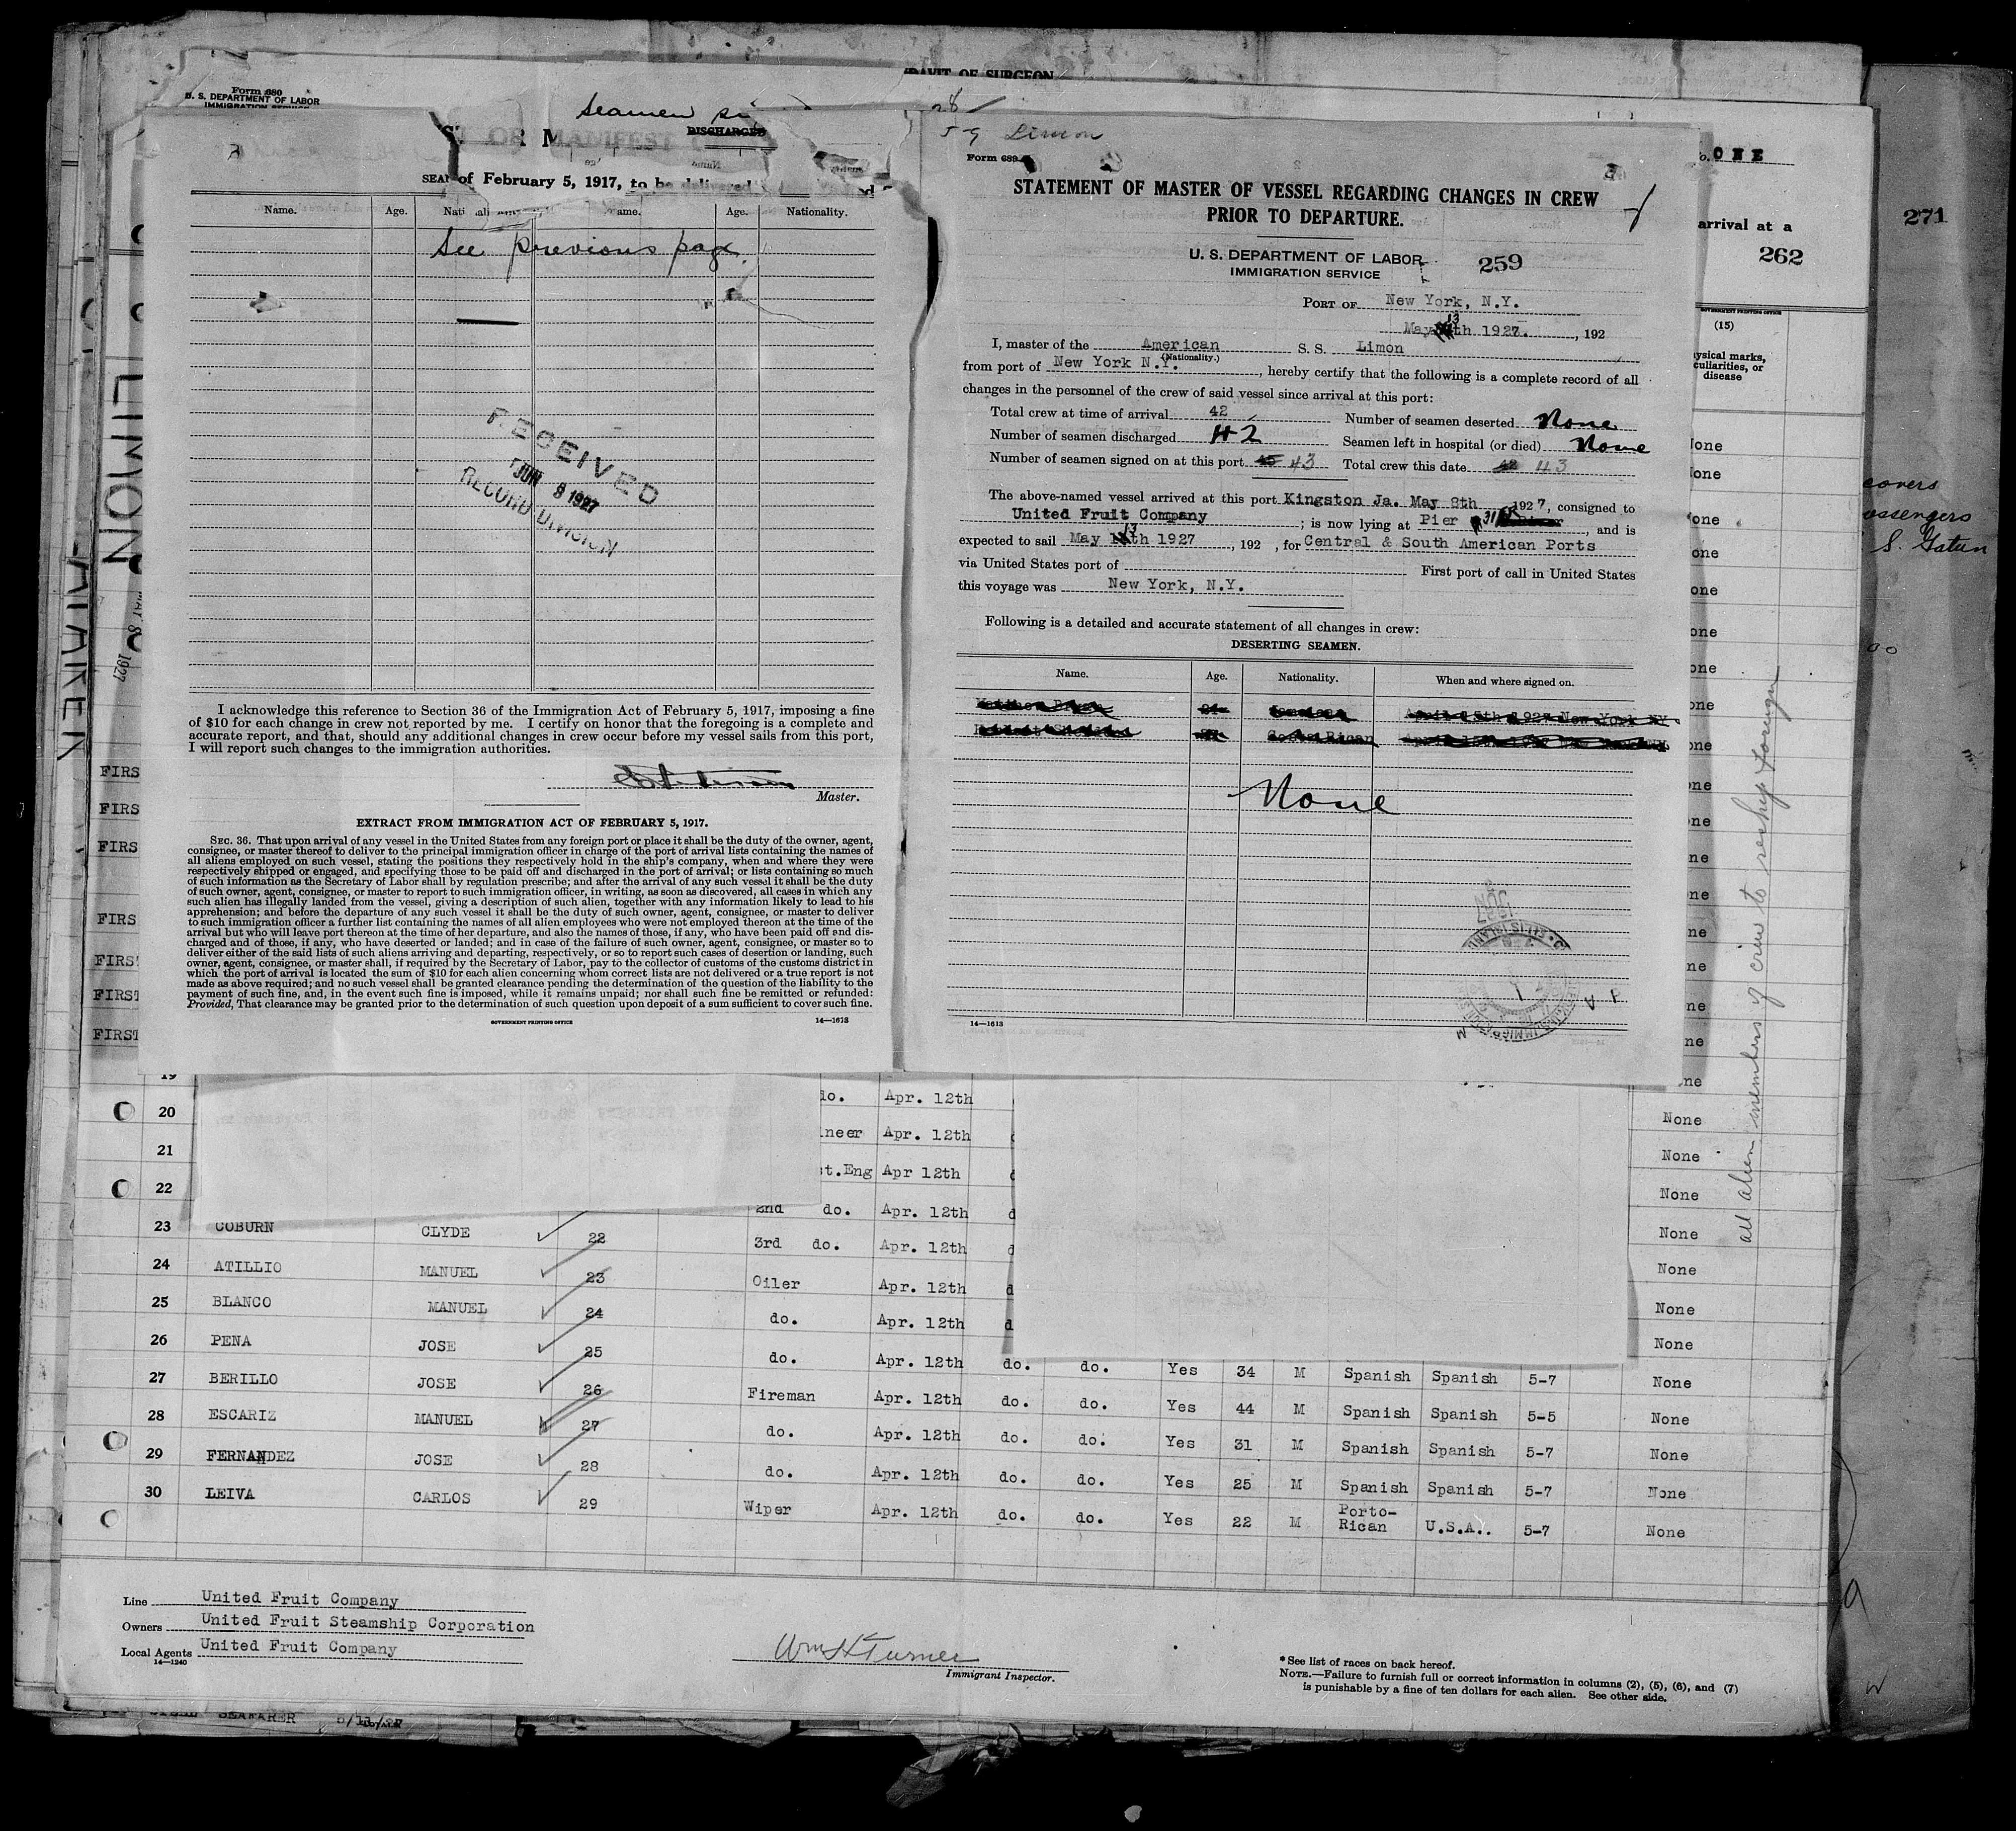 AVIT OF SURGEON
Form 680
U. S. DEPARTMENT OF LABOR
IMMIGRATION SERVICE
Seamen
DISCHARGED
OR MANIFEST
of February 5, 1917, to be delivered
Name. Age. Name. Age. Nationality.
See previous page.
RECEIVED
JUN 9 1927
RECORD DIVISION
I acknowledge this reference to Section 36 of the Immigration Act of February 5, 1917, imposing a fine
of $10 for each change in crew not reported by me. I certify on honor that the foregoing is a complete and
accurate report, and that, should any additional changes in crew occur before my vessel sails from this port,
I will report such changes to the immigration authorities.
Master.
EXTRACT FROM IMMIGRATION ACT OF FEBRUARY 5, 1917.
SEC. 36. That upon arrival of any vessel in the United States from any foreign port or place it shall be the duty of the owner, agent,
consignee, or master thereof to deliver to the principal immigration officer in charge of the port of arrival lists containing the names of
all aliens employed on such vessel, stating the positions they respectively hold in the ship's company, when and where they were
respectively shipped or engaged, and specifying those to be paid off and discharged in the port of arrival; or lists containing so much
of such information as the Secretary of Labor shall by regulation prescribe; and after the arrival of any such vessel it shall be the duty
of such owner, agent, consignee, or master to report to such immigration officer, in writing, as soon as discovered, all cases in which any
such alien has illegally landed from the vessel, giving a description of such alien, together with any information likely to lead to his
apprehension; and before the departure of any such vessel it shall be the duty of such owner, agent, consignee, or master to deliver
to such immigration officer a further list containing the names of all alien employees who were not employed thereon at the time of the
arrival but who will leave port thereon at the time of her departure, and also the names of those, if any, who have been paid off and dis-
charged and of those, if any, who have deserted or landed; and in case of the failure of such owner, agent, consignee, or master so to
deliver either of the said lists of such aliens arriving and departing, respectively, or so to report such cases of desertion or landing, such
owner, agent, consignee, or master shall, if required by the Secretary of Labor, pay to the collector of customs of the customs district in
which the port of arrival is located the sum of $10 for each alien concerning whom correct lists are not delivered or a true report is not
made as above required; and no such vessel shall be granted clearance pending the determination of the question of the liability to the
payment of such fine, and, in the event such fine is imposed, while it remains unpaid; nor shall such fine be remitted or refunded:
Provided, That clearance may be granted prior to the determination of such question upon deposit of a sum sufficient to cover such fine.
GOVERNMENT PRINTING OFFICE 14—1673
5-9 Limon
Form 689
STATEMENT OF MASTER OF VESSEL REGARDING CHANGES IN CREW
PRIOR TO DEPARTURE.
U. S. DEPARTMENT OF LABOR
IMMIGRATION SERVICE
259
PORT OF New York, N.Y.
May 13 th 1927. , 192
I, master of the American S. S. Limon
(Nationality.)
from port of New York N.Y. , hereby certify that the following is a complete record of all
changes in the personnel of the crew of said vessel since arrival at this port:
Total crew at time of arrival 42 Number of seamen deserted None
Number of seamen discharged 42 Seamen left in hospital (or died) None
Number of seamen signed on at this port 45 43 Total crew this date 42 43
The above-named vessel arrived at this port Kingston Ja. May 8th 1927, consigned to
United Fruit Company ; is now lying at Pier , and is
expected to sail May 13 th 1927 , 192 , for Central & South American Ports
via United States port of First port of call in United States
this voyage was New York, N.Y.
Following is a detailed and accurate statement of all changes in crew:
DESERTING SEAMEN.
Name. Age. Nationality. When and where signed on.
None
14—1613
ONE
arrival at a
262
271
(15)
ysical marks,
culiarities, or
disease
covers
assengers
S. Gatun
all alien members of crew to reship foreign
LIMON
MAY 8 1927
FIRS
FIRS
FIRS
FIRS
FIRST
FIRST
FIRST
19
do. Apr. 12th
20 None
ineer Apr. 12th
21 None
st.Eng Apr 12th
22 None
2nd do. Apr. 12th
23 COBURN CLYDE 22 3rd do. Apr. 12th None
24 ATILLIO MANUEL 23 Oiler Apr. 12th None
25 BLANCO MANUEL 24 do. Apr. 12th None
26 PENA JOSE 25 do. Apr. 12th do. do. Yes 34 M Spanish Spanish 5-7 None
27 BERILLO JOSE 26 Fireman Apr. 12th do. do. Yes 44 M Spanish Spanish 5-5 None
28 ESCARIZ MANUEL 27 do. Apr. 12th do. do. Yes 31 M Spanish Spanish 5-7 None
29 FERNANDEZ JOSE 28 do. Apr. 12th do. do. Yes 25 M Spanish Spanish 5-7 None
30 LEIVA CARLOS 29 Wiper Apr. 12th do. do. Yes 22 M Porto-Rican U.S.A.. 5-7 None
Line United Fruit Company
Owners United Fruit Steamship Corporation
Local Agents United Fruit Company
14—1240
Wm H Turner
Immigrant Inspector.
* See list of races on back hereof.
NOTE.—Failure to furnish full or correct information in columns (2), (5), (6), and (7)
is punishable by a fine of ten dollars for each alien. See other side.
SEAFARER 5/11/27